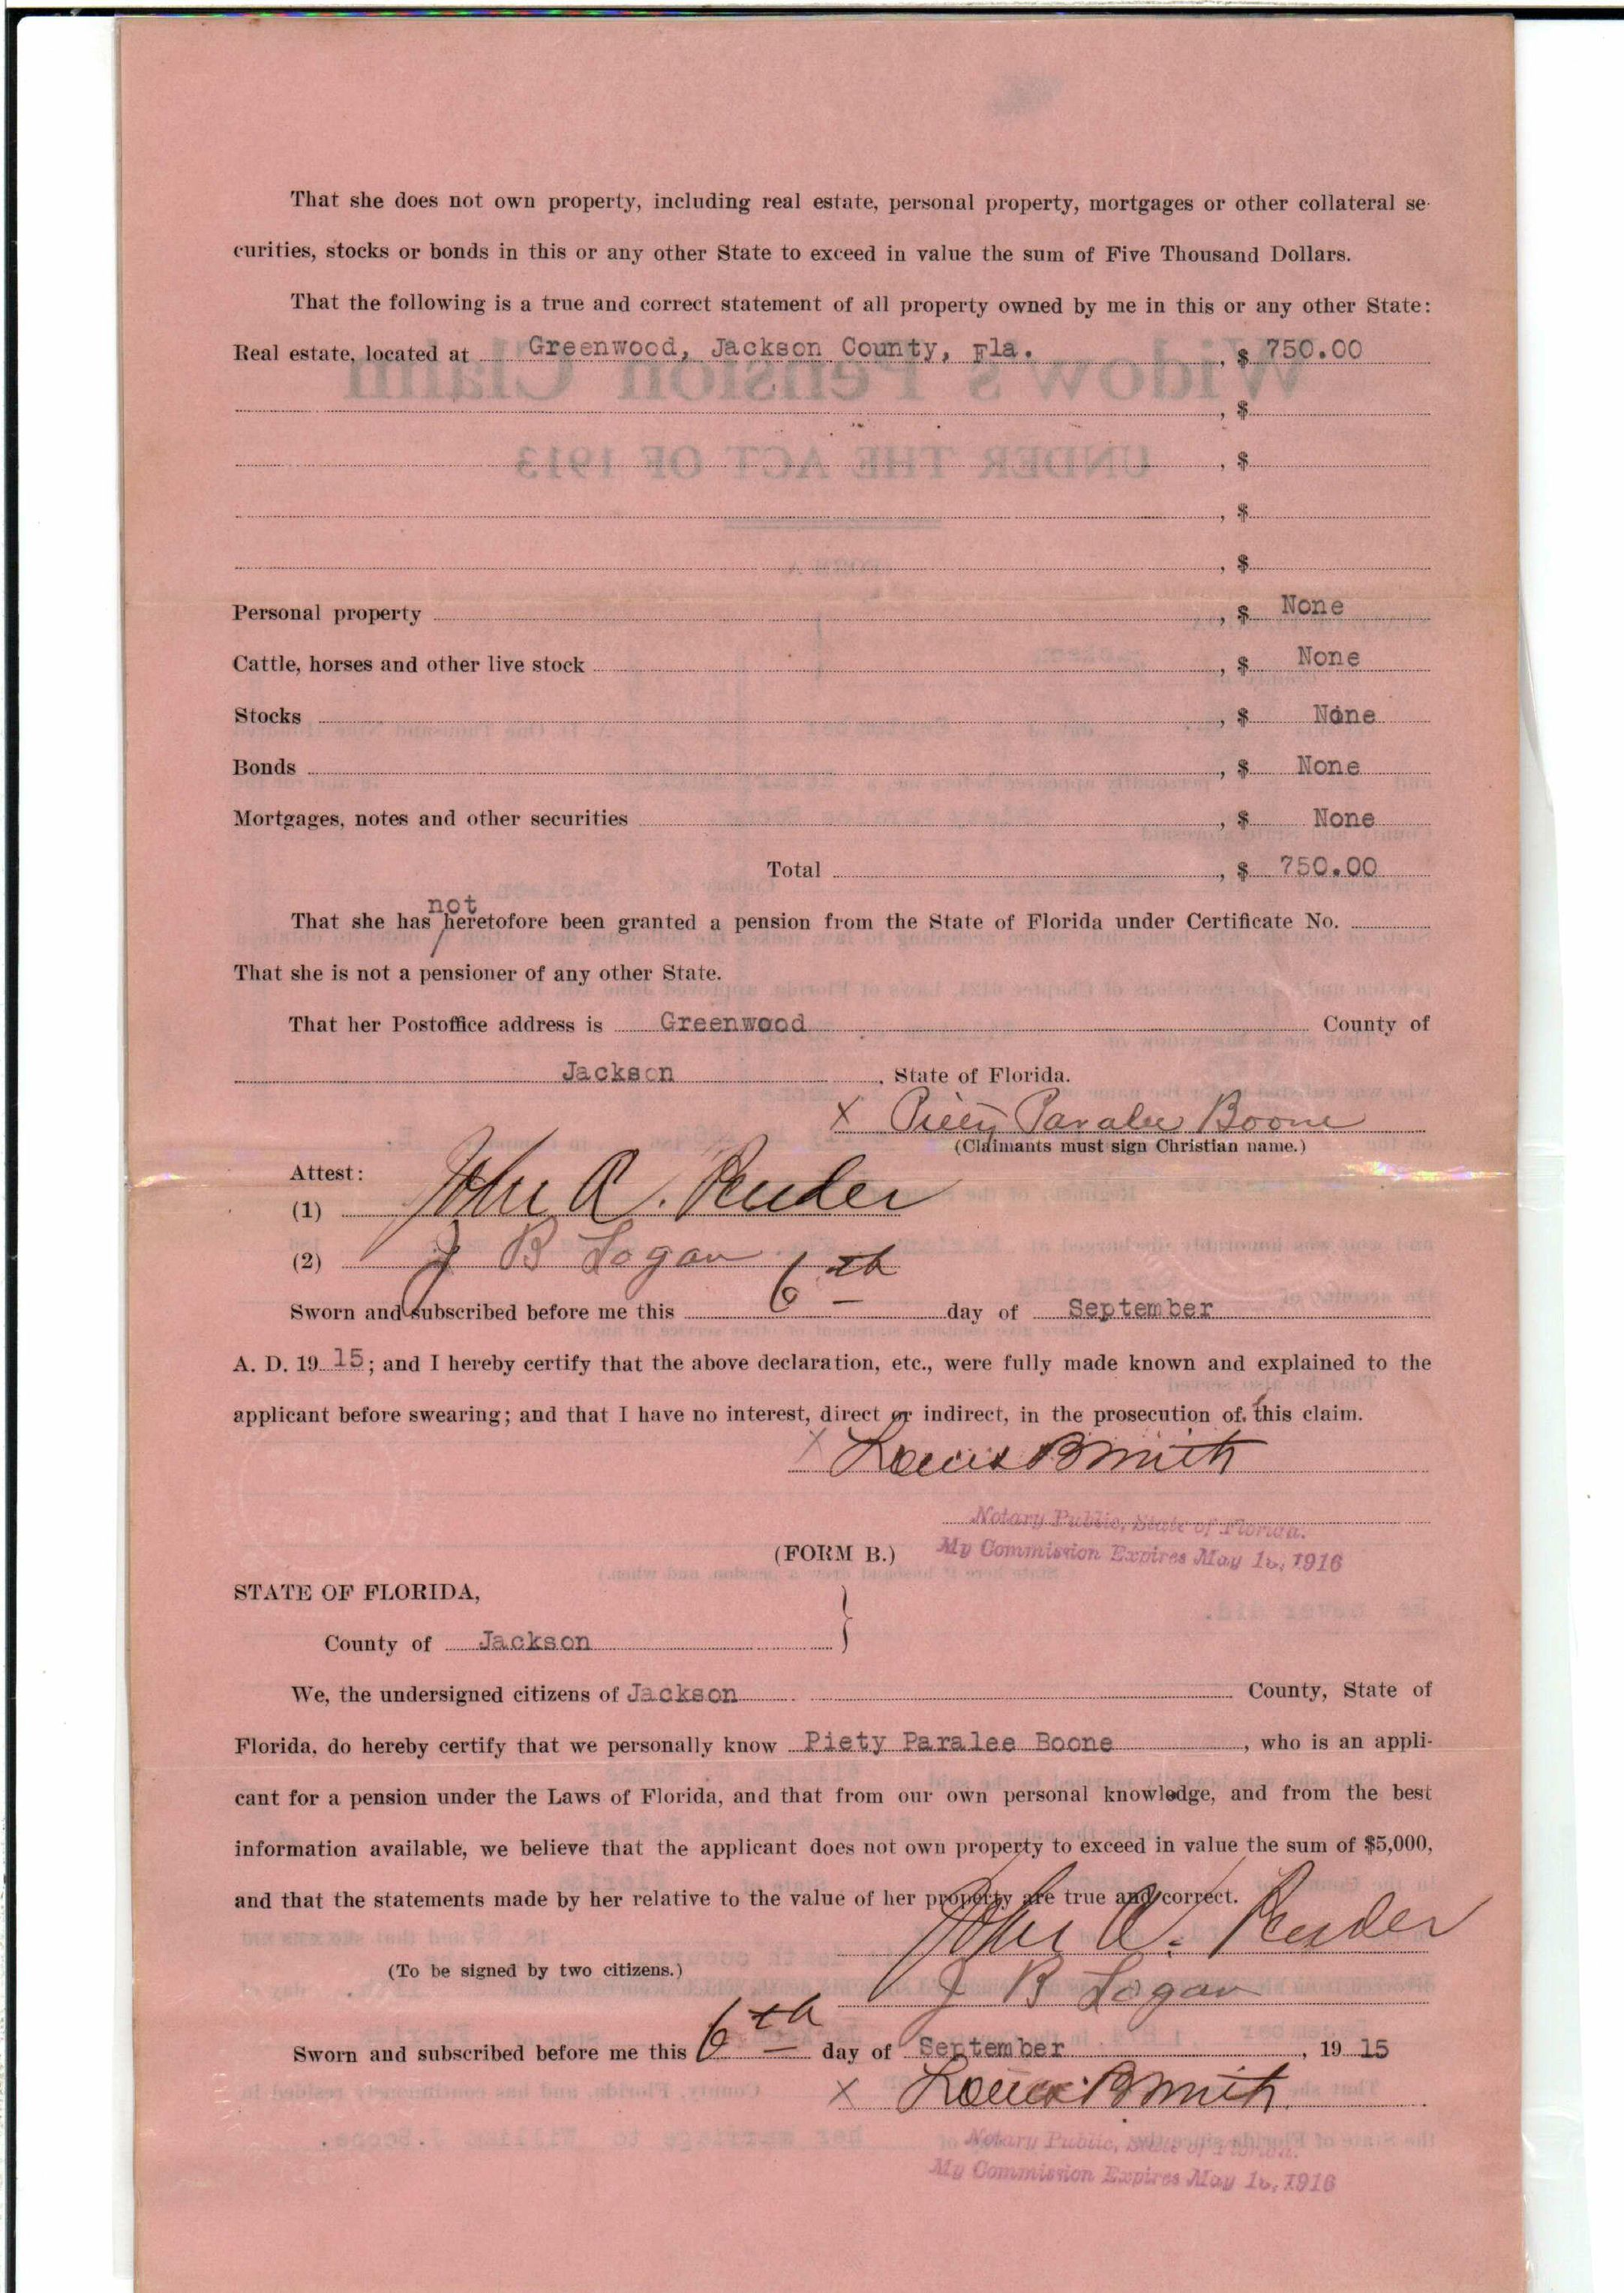 That she does not own property, including real estate, personal property, mortgages or other collateral se-
curities, stocks or bonds in this or any other State to exceed in value the sum of Five Thousand Dollars.
That the following is a true and correct statement of all property owned by me in this or any other State:
Real estate, located at Greenwood, Jackson County, Fla. , $ 750.00
, $
, $
, $
, $
Personal property , $ None
Cattle, horses and other live stock , $ None
Stocks , $ None
Bonds , $ None
Mortgages, notes and other securities , $ None
Total , $ 750.00
not
That she has heretofore been granted a pension from the State of Florida under Certificate No.
That she is not a pensioner of any other State.
That her Postoffice address is Greenwood County of
Jackson , State of Florida.
X Piety Paralee Boone
(Claimants must sign Christian name.)
Attest:
(1) John A. Pender
(2) J B Logan
Sworn and subscribed before me this 6th day of September
A. D. 19 15; and I hereby certify that the above declaration, etc., were fully made known and explained to the
applicant before swearing; and that I have no interest, direct or indirect, in the prosecution of this claim.
X Lewis B Smith
Notary Public, State of Florida.
(FORM B.) My Commission Expires May , 1916
STATE OF FLORIDA,
County of Jackson
We, the undersigned citizens of Jackson County, State of
Florida, do hereby certify that we personally know Piety Paralee Boone , who is an appli-
cant for a pension under the Laws of Florida, and that from our own personal knowledge, and from the best
information available, we believe that the applicant does not own property to exceed in value the sum of $5,000,
and that the statements made by her relative to the value of her property are true and correct.
John A. Pender
(To be signed by two citizens.)
J B Logan
Sworn and subscribed before me this 6th day of September , 19 15
X Lewis B Smith
Notary Public, State of Florida.
My Commission Expires May , 1916